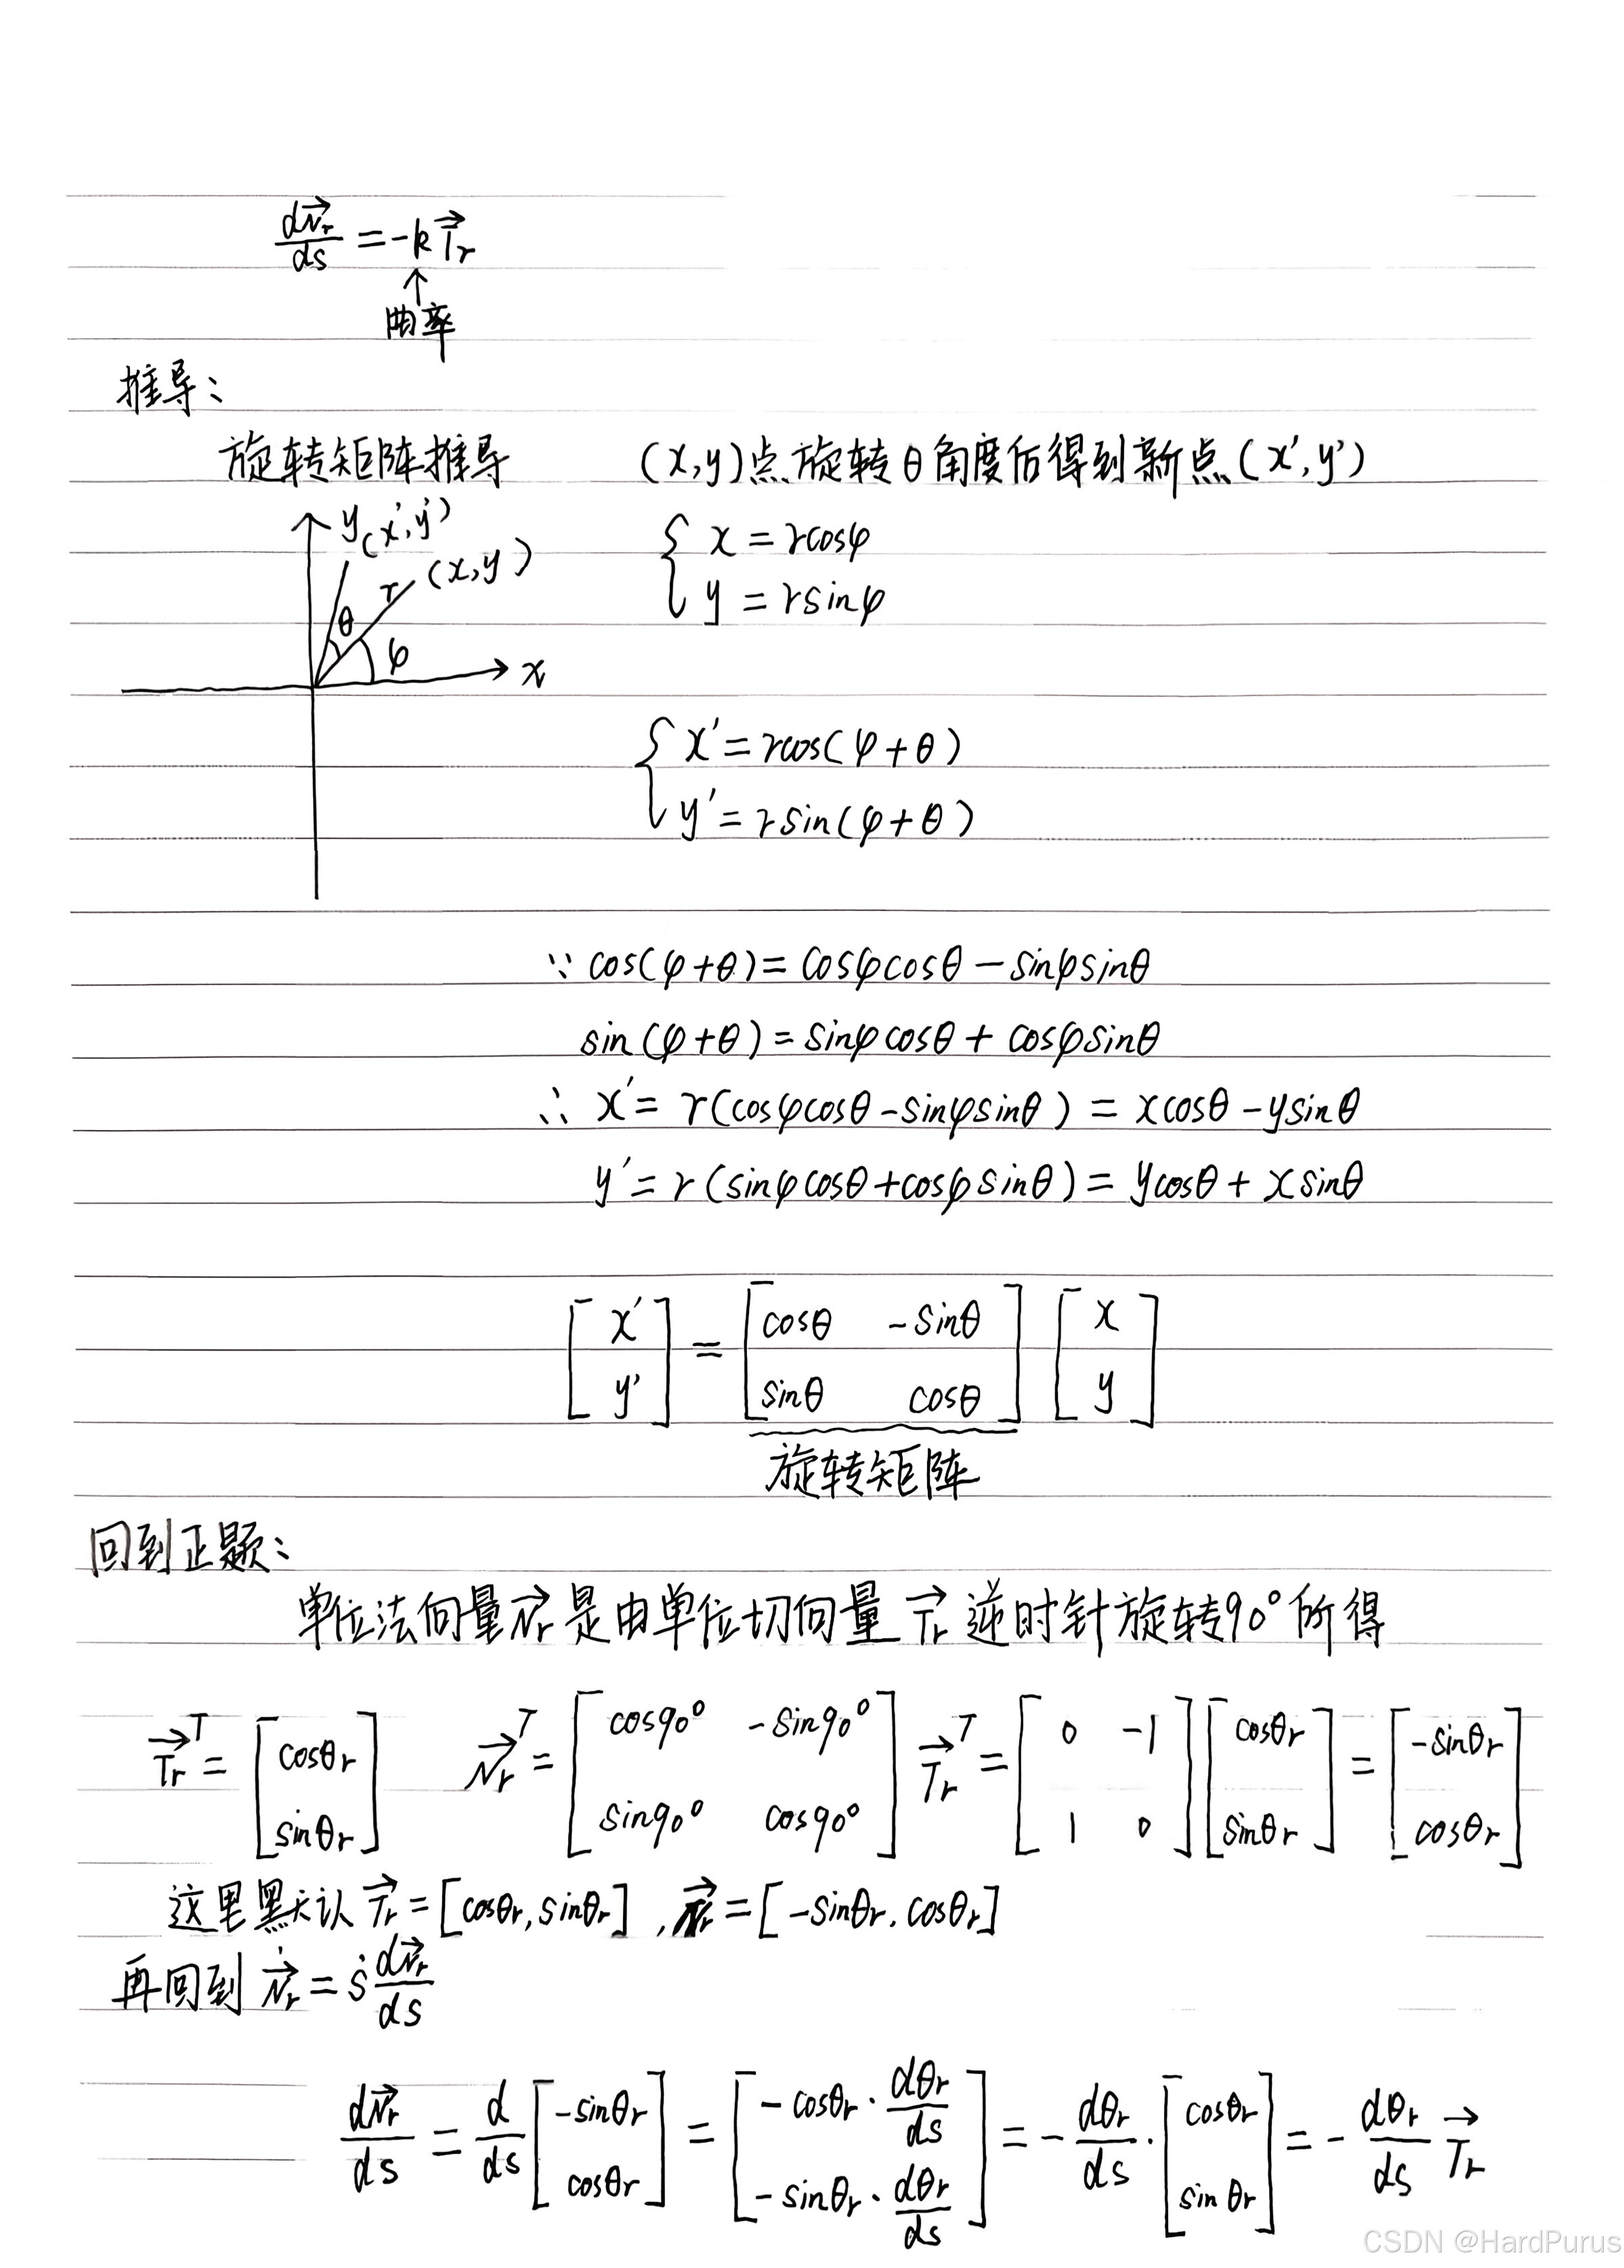 dN⃗r/ds = -k T⃗r
↑
曲率
推导：
旋转矩阵推导 (x,y)点旋转θ角度后得到新点(x',y')
y (x',y')
r (x,y)
θ
φ
x
{ x = rcosφ
y = rsinφ
{ x' = rcos(φ+θ)
y' = rsin(φ+θ)
∵ cos(φ+θ) = cosφcosθ - sinφsinθ
sin(φ+θ) = sinφcosθ + cosφsinθ
∴ x' = r(cosφcosθ - sinφsinθ) = xcosθ - ysinθ
y' = r(sinφcosθ + cosφsinθ) = ycosθ + xsinθ
[x' ; y'] = [cosθ -sinθ ; sinθ cosθ] [x ; y]
旋转矩阵
回到正题：
单位法向量N⃗r是由单位切向量T⃗r逆时针旋转90°所得
T⃗r^T = [cosθr ; sinθr] N⃗r^T = [cos90° -sin90° ; sin90° cos90°] T⃗r^T = [0 -1 ; 1 0] [cosθr ; sinθr] = [-sinθr ; cosθr]
这里默认 T⃗r = [cosθr, sinθr], N⃗r = [-sinθr, cosθr]
再回到 N⃗̇r = ṡ dN⃗r/ds
dN⃗r/ds = d/ds [-sinθr ; cosθr] = [-cosθr · dθr/ds ; -sinθr · dθr/ds] = - dθr/ds · [cosθr ; sinθr] = - dθr/ds T⃗r
CSDN @HardPurus